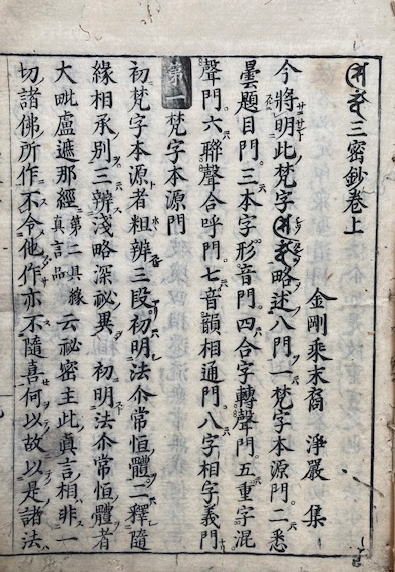 𑖭𑖰𑖟𑖿𑖠𑖽三密鈔卷上
金剛乘末裔 淨嚴 集
今將明此梵字𑖭𑖰𑖟𑖿𑖠𑖽略述八門一梵字本源門二悉
曇題目門三本字形音門四合字轉聲門五重字混
聲門六聯聲合呼門七音韻相通門八字相字義門
第一梵字本源門
初梵字本源者粗辨三段初明法尒常恒體二釋隨
緣相承別三辨淺略深祕異 初明法尒常恒體者
大毗盧遮那經第二具緣眞言品云祕密主此眞言相非一
切諸佛所作不令他作亦不隨喜何以故以是諸法